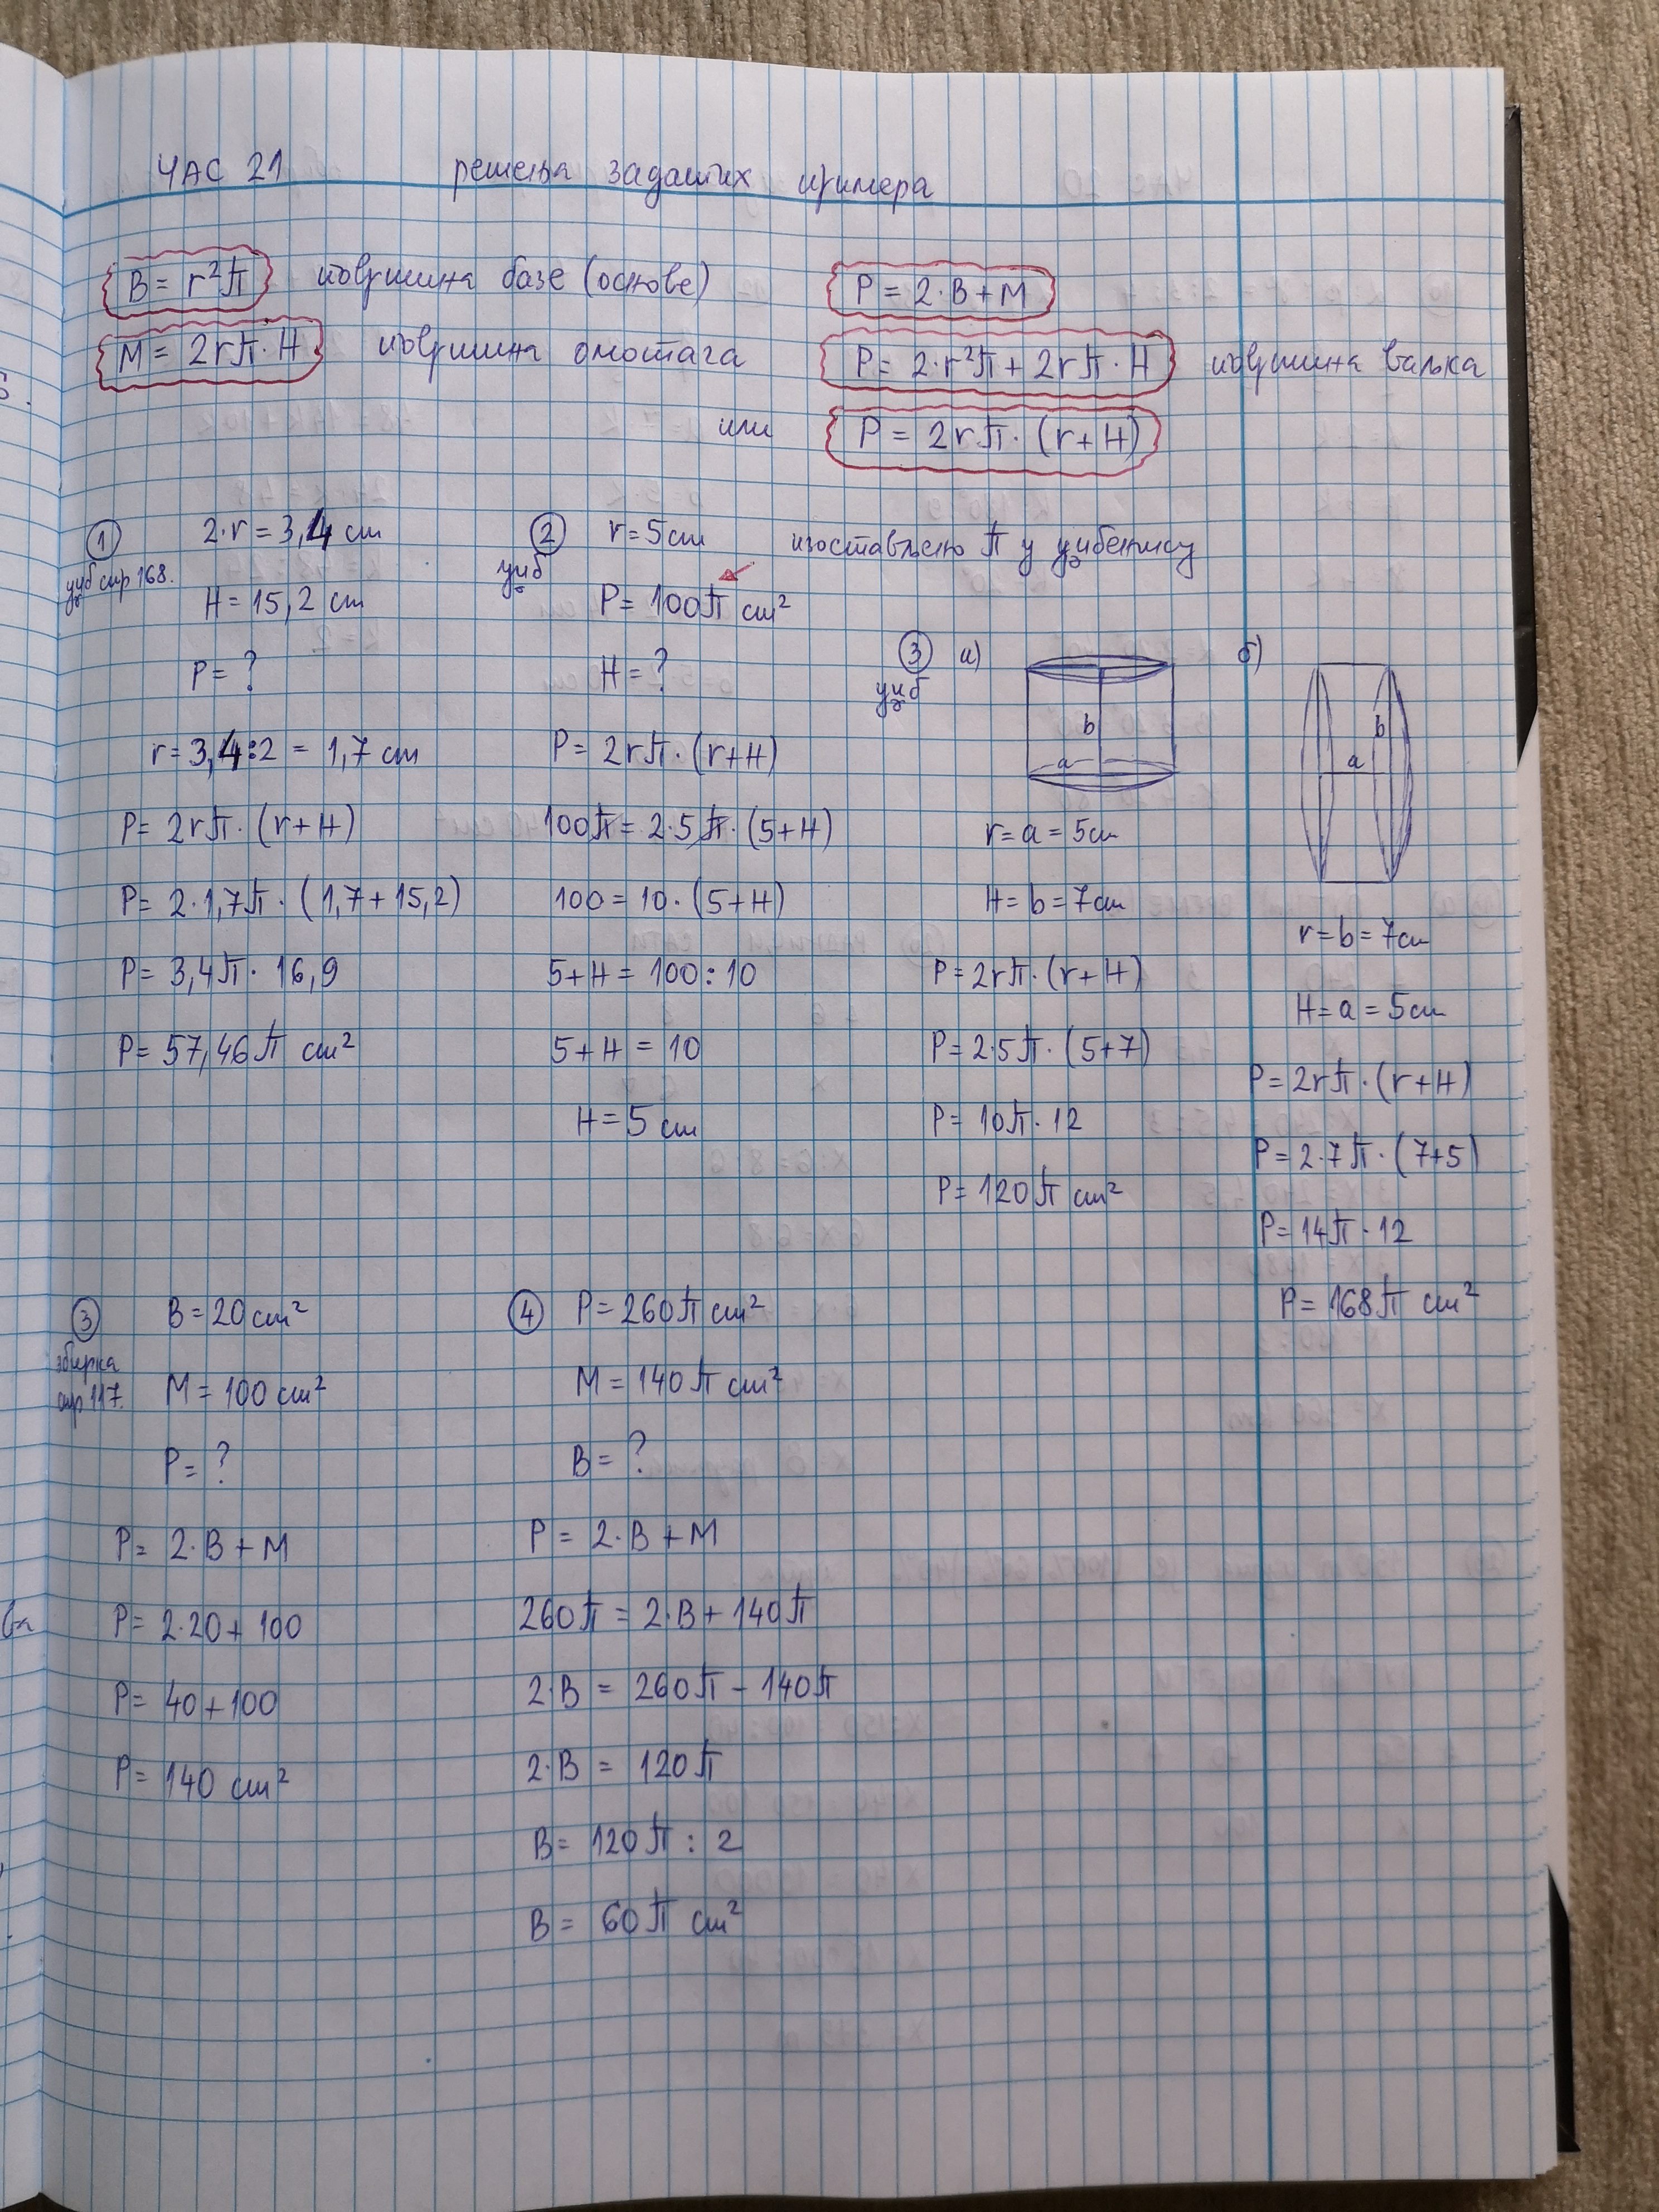 ЧАС 21 решења задатих примера
B = r²π површина базе (основе)
M = 2rπ · H површина омотача
P = 2·B + M
P = 2·r²π + 2rπ · H површина ваљка
или P = 2rπ · (r + H)
1
уџб стр 168.
2·r = 3,4 cm
H = 15,2 cm
P = ?
r = 3,4:2 = 1,7 cm
P = 2rπ · (r + H)
P = 2·1,7π · (1,7 + 15,2)
P = 3,4π · 16,9
P = 57,46π cm²
2
уџб
r = 5 cm изостављено π у уџбенику
P = 100π cm²
H = ?
P = 2rπ · (r + H)
100π = 2·5π · (5 + H)
100 = 10 · (5 + H)
5 + H = 100 : 10
5 + H = 10
H = 5 cm
3
уџб
а)
b
a
r = a = 5 cm
H = b = 7 cm
P = 2rπ · (r + H)
P = 2·5π · (5 + 7)
P = 10π · 12
P = 120π cm²
б)
b
a
r = b = 7 cm
H = a = 5 cm
P = 2rπ · (r + H)
P = 2·7π · (7+5)
P = 14π · 12
P = 168π cm²
3
збирка
стр 117.
B = 20 cm²
M = 100 cm²
P = ?
P = 2·B + M
P = 2·20 + 100
P = 40 + 100
P = 140 cm²
4
P = 260π cm²
M = 140π cm²
B = ?
P = 2·B + M
260π = 2·B + 140π
2·B = 260π − 140π
2·B = 120π
B = 120π : 2
B = 60π cm²